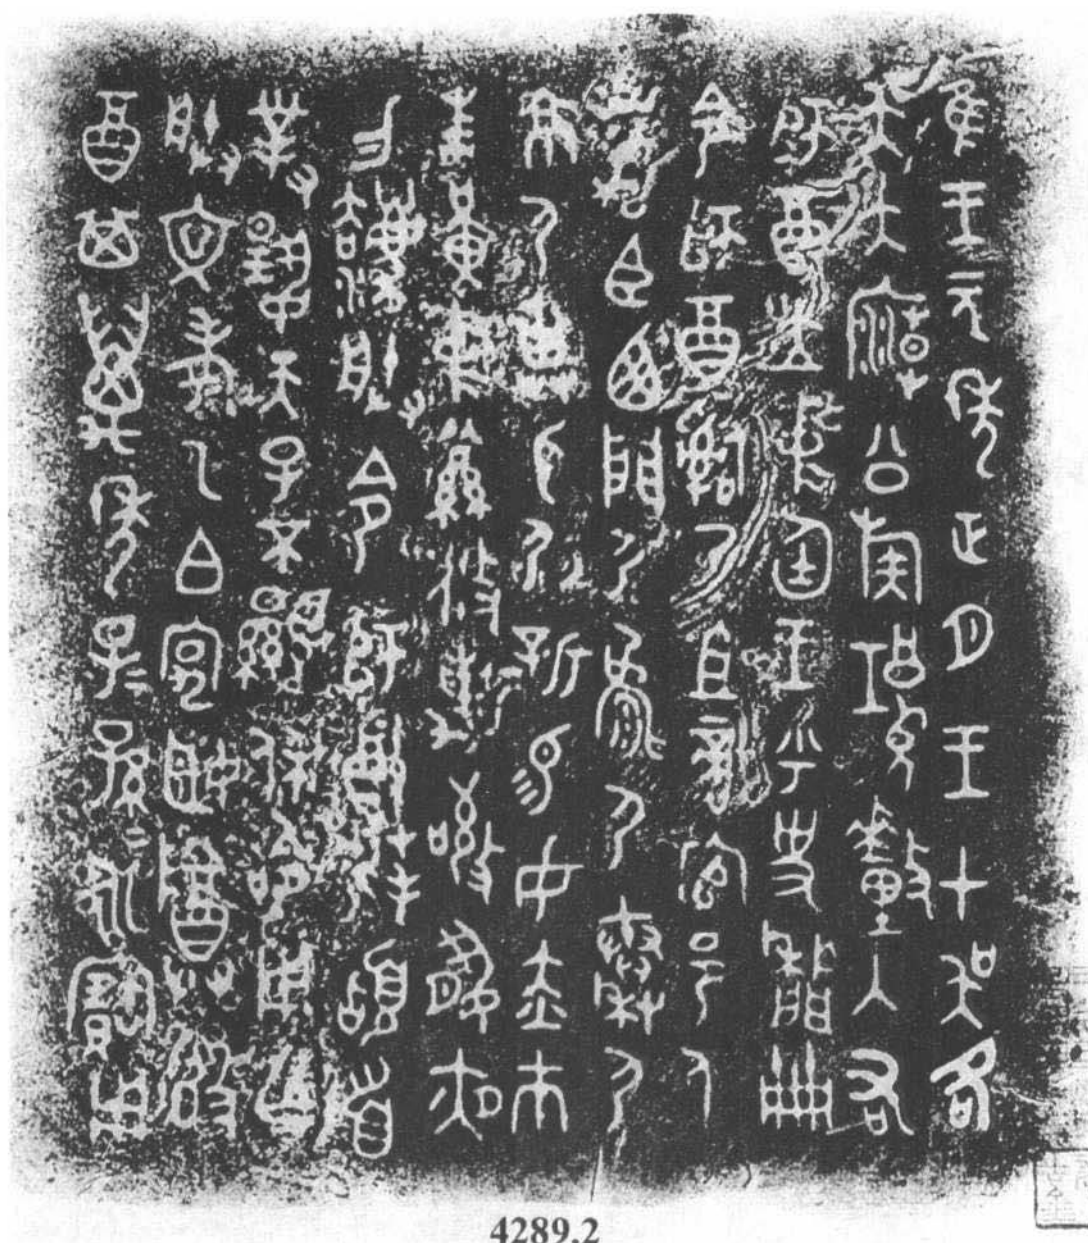 隹王元年正月王才吳各
吳大廟公族𤔲釐入右
師酉立中廷王乎史𤯍冊
命師酉𤔲乃且啻官邑人
虎臣西門尸𩁹尸秦尸
京尸畀身尸新易女赤巿
朱黃中𦄂攸勒敬夙夜
勿灋朕令師酉拜𩒨首
對揚天子不顯休命用乍
朕文考乙白宄姬尊簋
酉其萬年子子孫孫永寶用
4289.2